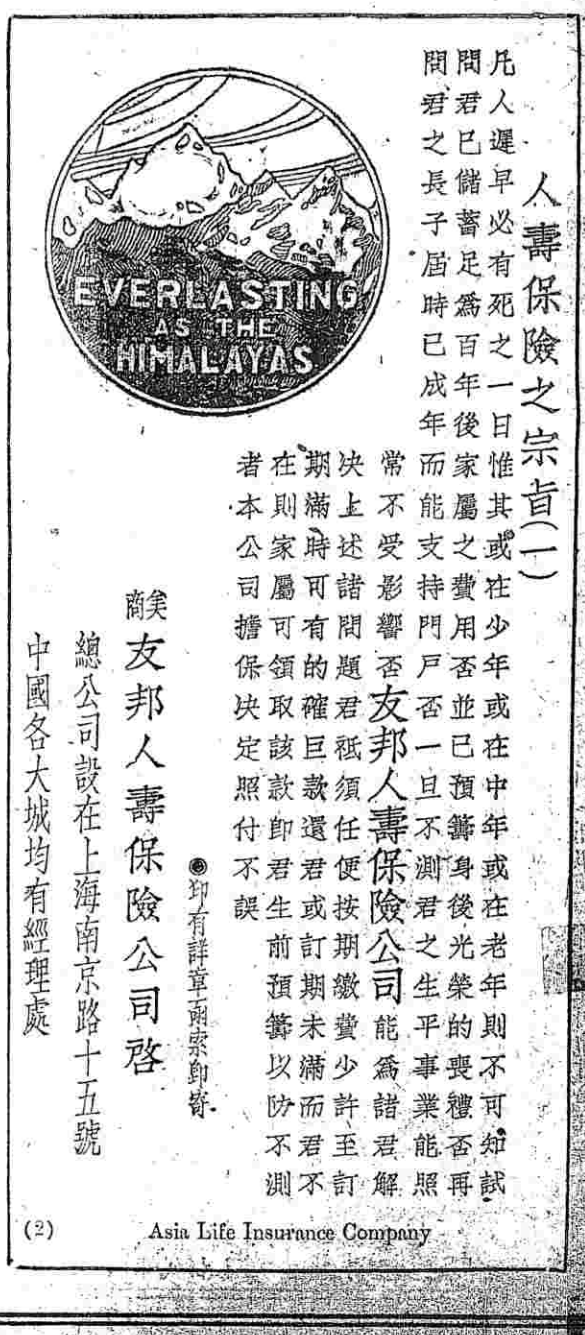 人壽保險之宗旨(一)
凡人遲早必有死之一日惟其或在少年或在中年或在老年則不可知試
問君已儲蓄足爲百年後家屬之費用否並已預籌身後光榮的喪禮否再
問君之長子屆時已成年而能支持門戶否一旦不測君之生平事業能照
常不受影響否友邦人壽保險公司能爲諸君解
决上述諸問題君祗須任便按期繳費少許至訂
期滿時可有的確巨款還君或訂期未滿而君不
在則家屬可領取該款卽君生前預籌以防不測
者本公司擔保决定照付不誤
◉印有詳章函索卽寄
美商友邦人壽保險公司啓
總公司設在上海南京路十五號
中國各大城均有經理處
EVERLASTING
AS THE
HIMALAYAS
(2)
Asia Life Insurance Company